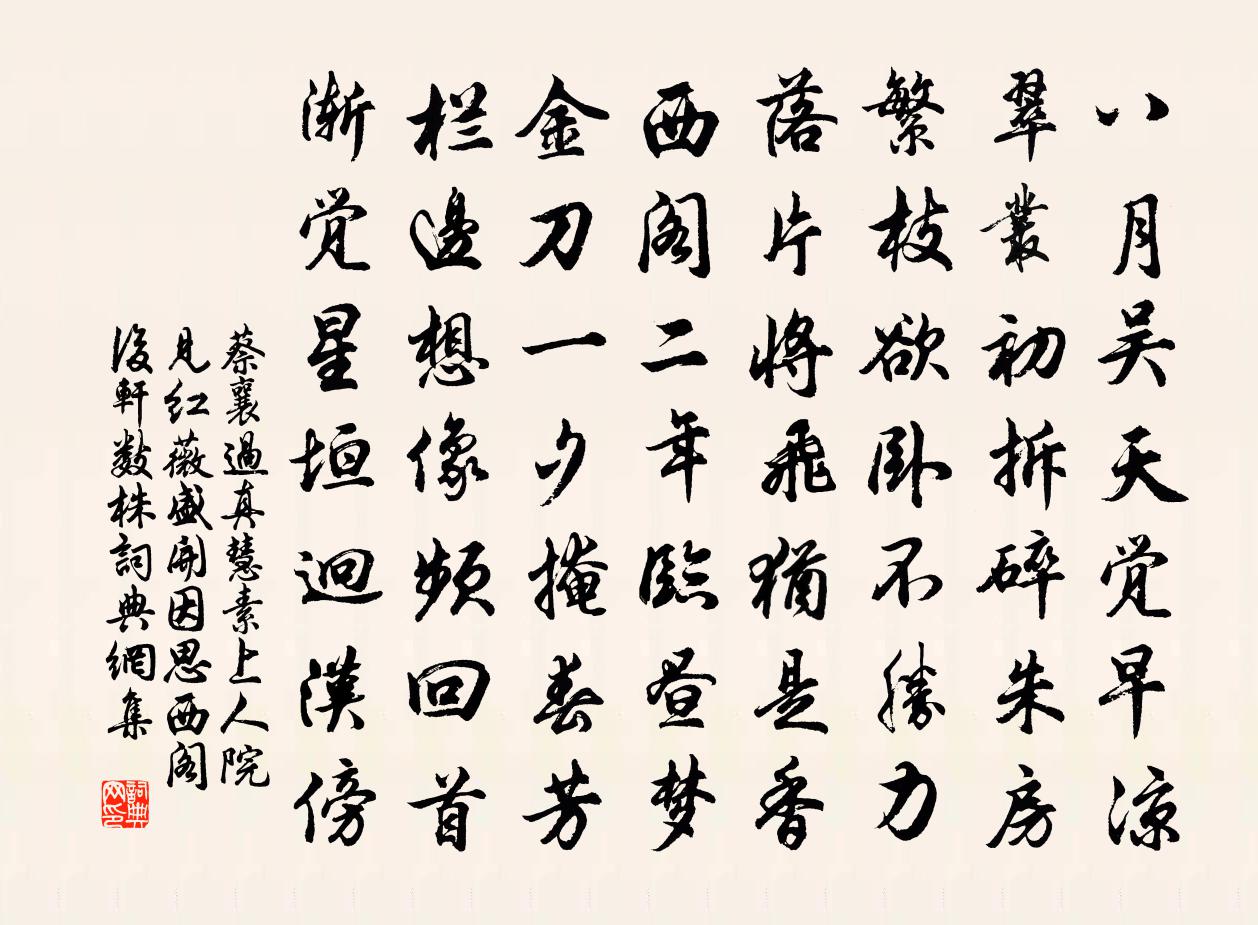 八月吴天觉早凉
翠叢初拆碎朱房
繁枝欲卧不勝力
落片将飛猶是香
西阁二年臨昼梦
金刀一夕掩春芳
栏邊想像频回首
渐觉星垣迴漢傍
蔡襄過真慧素上人院
见红薇盛開因思西阁
後軒数株詞典網集
詞典网印